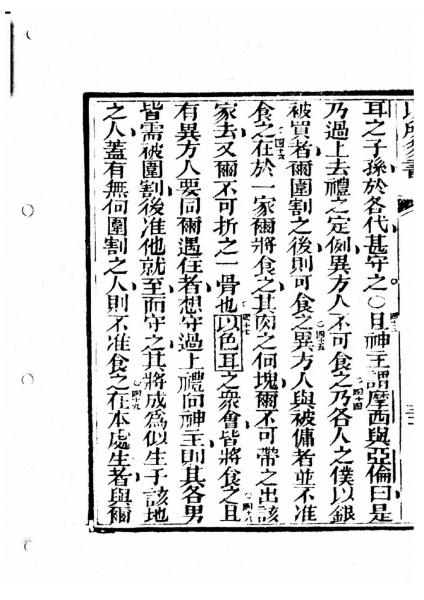 耳之子孫於各代甚守之○四十三且神主謂摩西與亞倫曰是
乃過上去禮之定例異方人不可食之四十四乃各人之僕以銀
被買者爾圍割之後則可食之四十五異方人與被傭者並不准
食之四十六在於一家爾將食之其肉之何塊爾不可帶之出該
家去又爾不可折之一骨也四十七以色耳之眾會皆將食之四十八且
有異方人要同爾遇住者想守過上禮向神主則其各男
皆需被圍割後准他就至而守之其將成為似生子該地
之人蓋有無何圍割之人則不准食之四十九在本處生者與爾